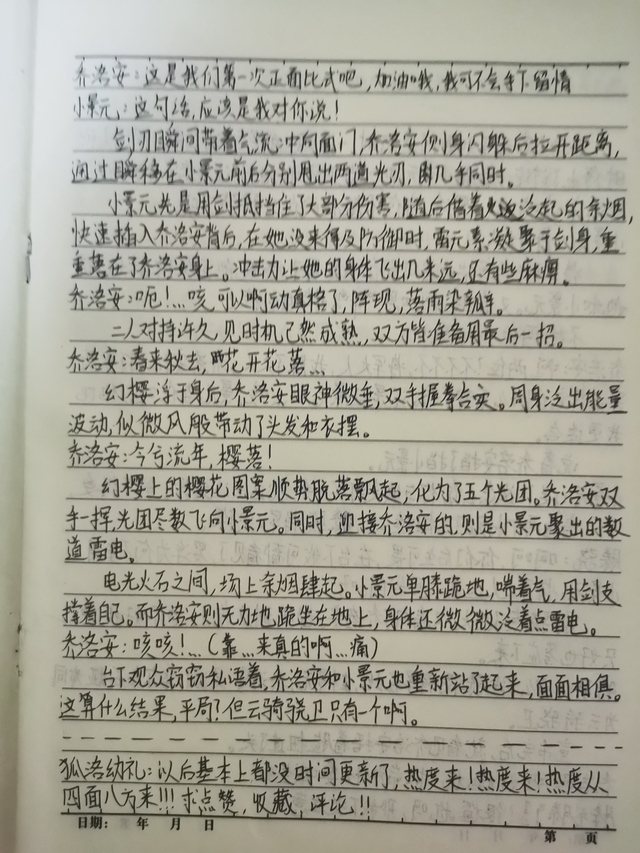 乔洛安：这是我们第一次正面比试吧，加油哦，我可不会手下留情
小景元：这句话，应该是我对你说！
剑刃瞬间带着气流冲向面门，乔洛安侧身闪躲后拉开距离，
通过瞬移在小景元前后分别甩出两道光刃，即几乎同时。
小景元光是用剑抵挡住了大部分伤害，随后借着火波泛起的余烟，
快速插入乔洛安背后，在她没来得及防御时，雷元素凝聚于剑身，重
重落在了乔洛安身上。冲击力让她的身体飞出几米远，还有些麻痹。
乔洛安：呃！…咳，可以啊动真格了，阵现，落雨染瓢辛。
二人对持许久，见时机已然成熟，双方皆准备用最后一招。
乔洛安：春来秋去，花开花落…
幻樱浮于身后，乔洛安眼神微垂，双手握拳合实。周身泛出能量
波动，似微风般带动了头发和衣摆。
乔洛安：今兮流年，樱落！
幻樱上的樱花图案顺势脱落飘起，化为了五个光团。乔洛安双
手一挥，光团尽数飞向小景元。同时，迎接乔洛安的，则是小景元聚出的数
道雷电。
电光火石之间，场上余烟肆起。小景元单膝跪地，喘着气，用剑支
撑着自己。而乔洛安则无力地跪坐在地上，身体还微微泛着点雷电。
乔洛安：咳咳！…（靠…来真的啊…痛）
台下观众窃窃私语着，乔洛安和小景元也重新站了起来，面面相俱。
这算什么结果，平局？但云骑骁卫只有一个啊。
狐洛幼礼：以后基本上都没时间更新了，热度来！热度来！热度从
四面八方来！！！求点赞，收藏，评论！！
日期： 年 月 日 第 页